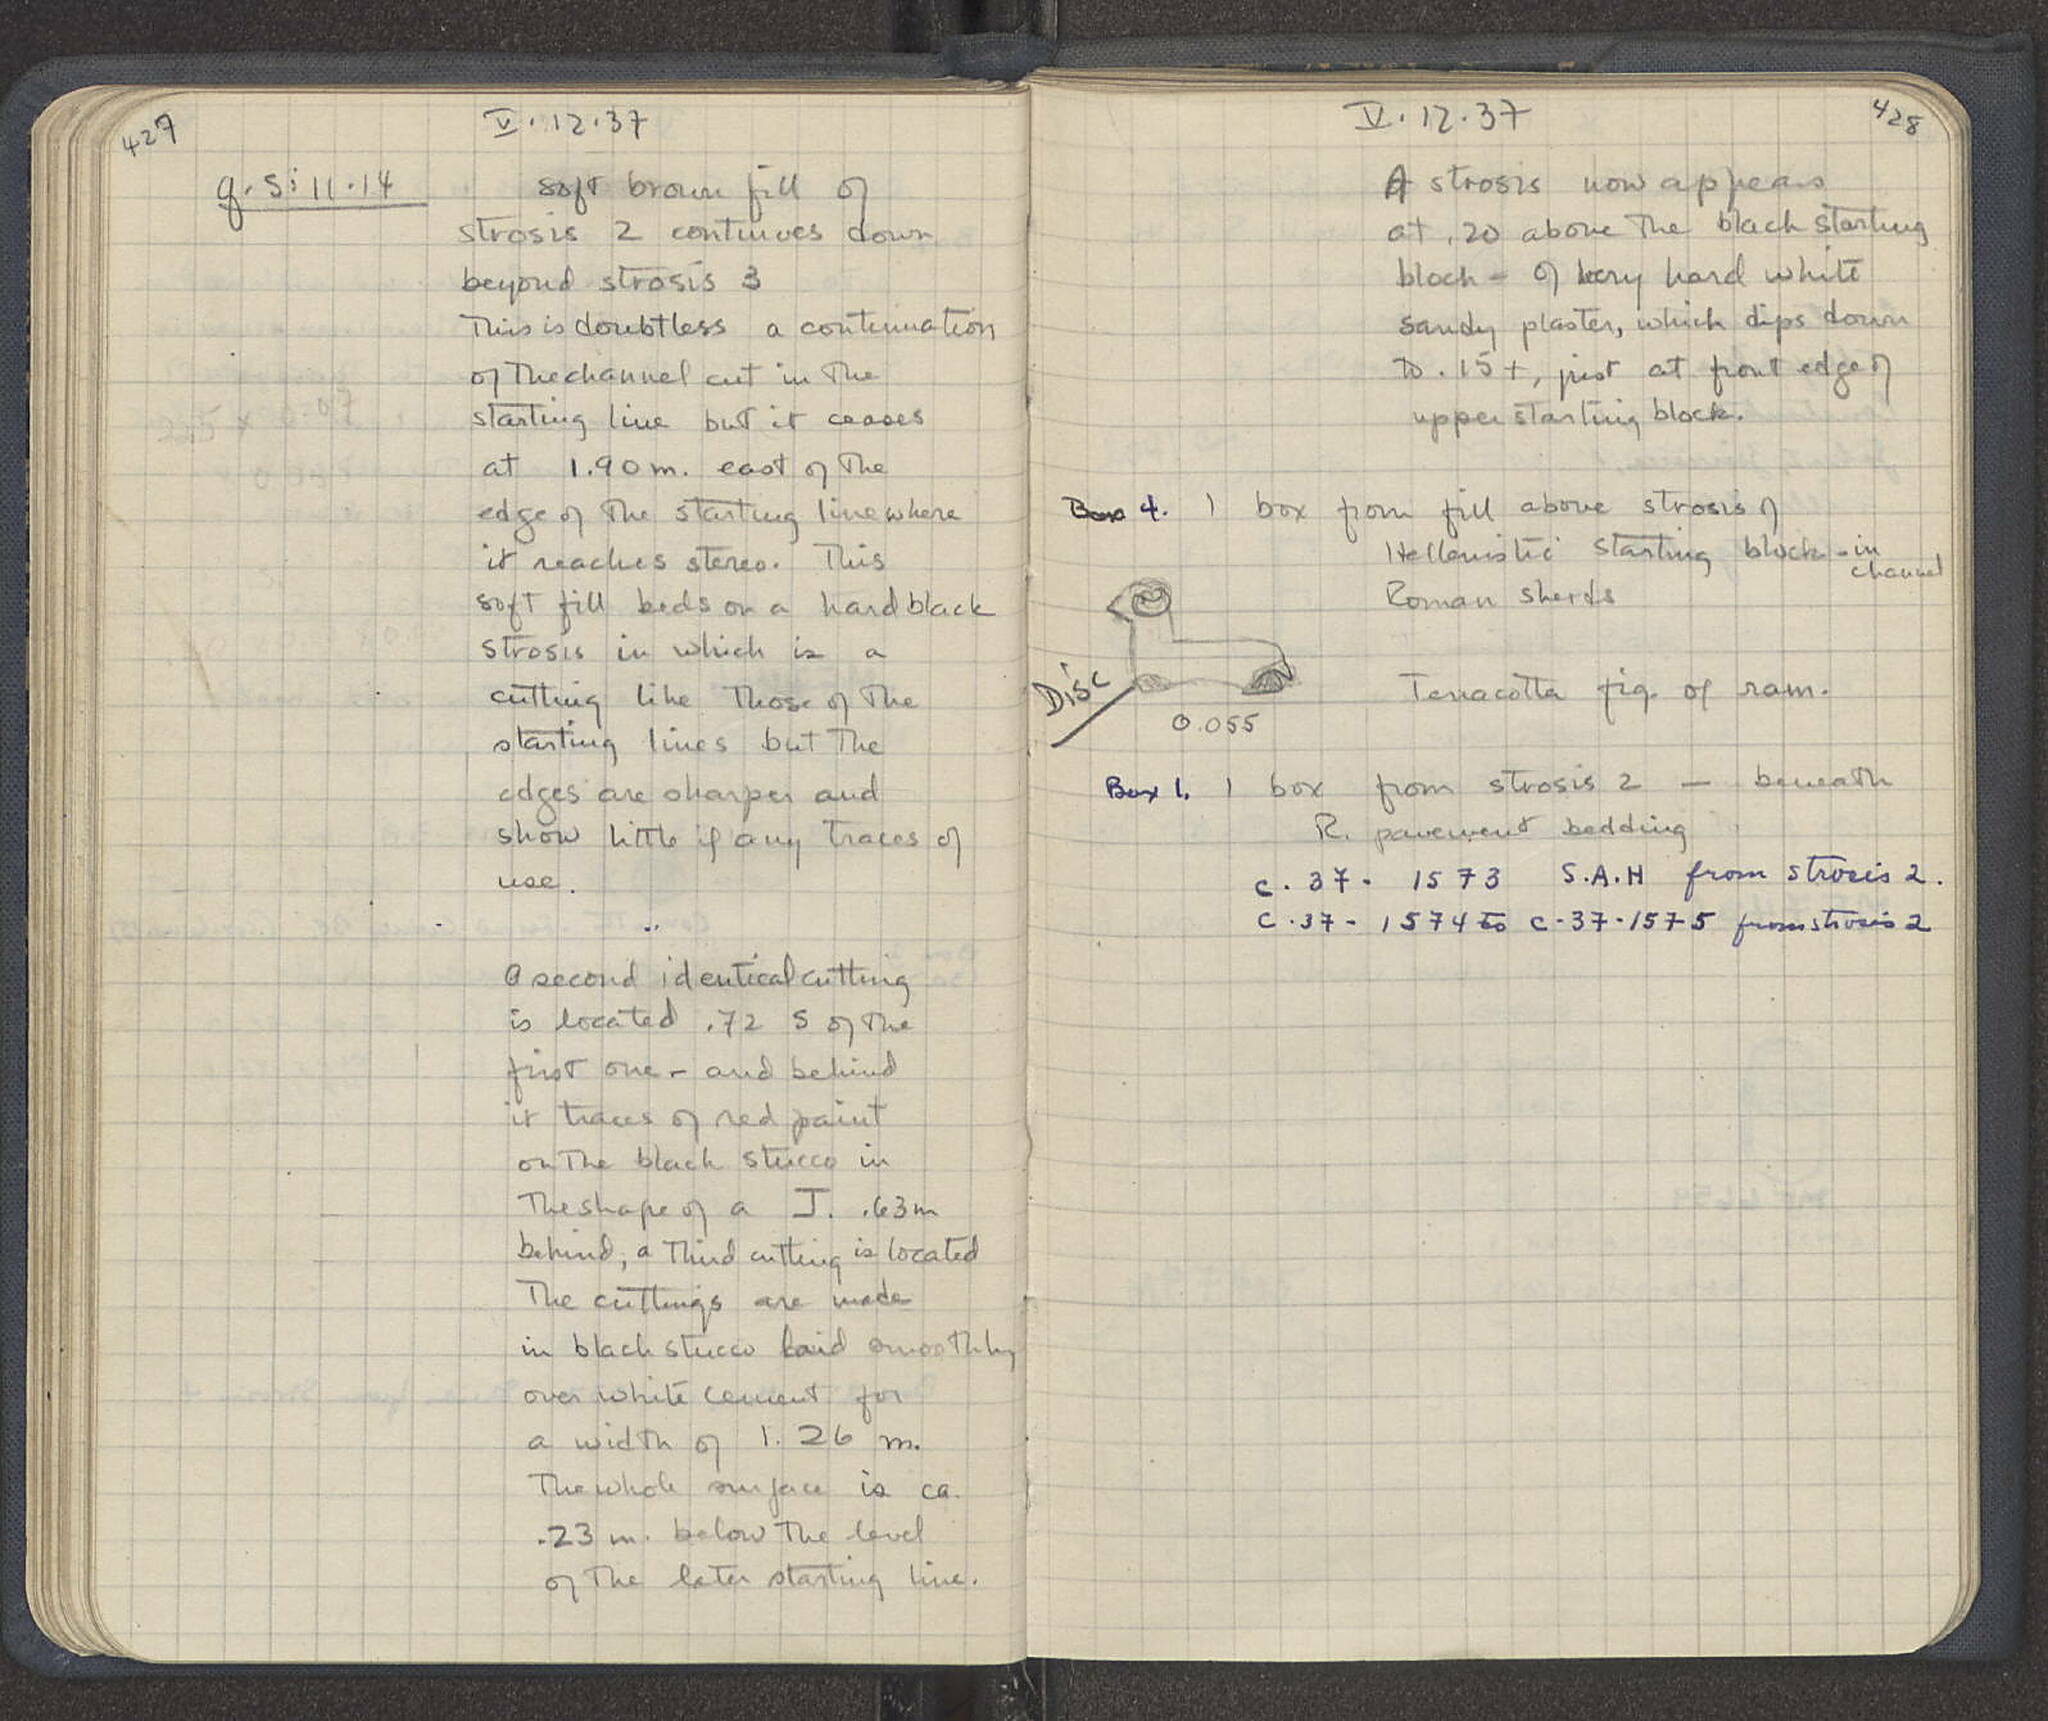 427
V. 12. 37
g. S: 11-14
soft brown fill of
strosis 2 continues down
beyond strosis 3
This is doubtless a continuation
of the channel cut in the
starting line but it ceases
at 1.90 m. east of the
edge of the starting line where
it reaches stereo. This
soft fill beds on a hard black
strosis in which is a
cutting like those of the
starting lines but the
edges are sharper and
show little if any traces of
use.
A second identical cutting
is located .72 S of the
first one - and behind
it traces of red paint
on the black stucco in
the shape of a J. .63m
behind, a third cutting is located
The cuttings are made
in black stucco laid smoothly
over white cement for
a width of 1.26 m.
The whole surface is ca.
.23 m. below the level
of the later starting line.
V. 12. 37
428
A strosis now appears
at .20 above the black starting
block - of very hard white
sandy plaster, which dips down
to .15+, just at front edge of
upper starting block.
Box 4. 1 box from fill above strosis of
Hellenistic starting block - in
channel
Roman sherds
Disc
0.055
Terracotta fig. of ram.
Box 1. 1 box from strosis 2 — beneath
R. pavement bedding
C. 37 - 1573 S.A.H from strosis 2.
C. 37 - 1574 to C-37-1575 from strosis 2